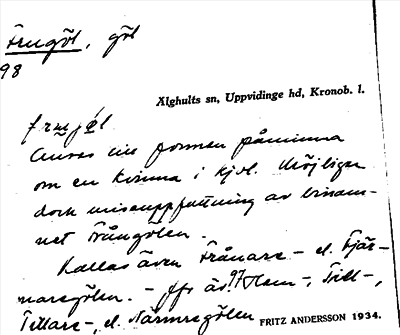 Frugöl, göl
98
Älghults sn, Uppvidinge hd, Kronob. l.
Anses till formen påminna
om en kvinna i kjol. Möjligen
dock missuppfattning av binam-
net Frångölen.
Kallas även Frånare- el. Fjär-
naregölen. - Jfr äs. 97 Hem-, Till-,
Tittare-, el. Närmregölen
FRITZ ANDERSSON 1934.